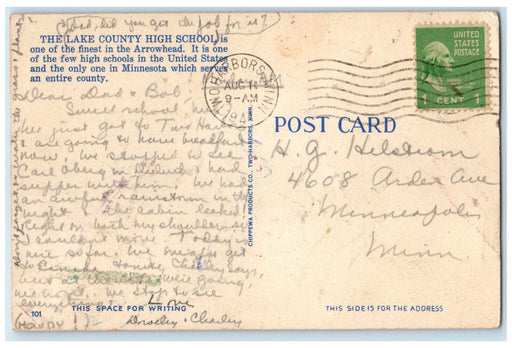 (Dad, did you get the job for us?)
THE LAKE COUNTY HIGH SCHOOL is
one of the finest in the Arrowhead. It is one
of the few high schools in the United States
and the only one in Minnesota which serves
an entire county.
Dear Dad & Bob,
Swell school,
We just got to Two Harbors
& are going to have breakfast
now. We stopped to see
in Duluth & had
supper with him. We had
an awful rainstorm in the
night & the cabin leaked
right on both my shoulders
I couldn't move. Today is
nice so far. We might get
to Canada tonite, Charley says,
but at the rate we're going,
we might. We stop to see
everything.
Love
Doroley & Charley
(HOWDY!)
Don't forget to water the grass & plants.
101
THIS SPACE FOR WRITING
CHIPPEWA PRODUCTS CO. TWO-HARBORS, MINN.
TWO HARBORS, MINN.
AUG 14
9-AM
194
UNITED
STATES
POSTAGE
1 CENT 1
POST CARD
H. G. Helstrom
4608 Arden Ave
Minneapolis
Minn
THIS SIDE IS FOR THE ADDRESS